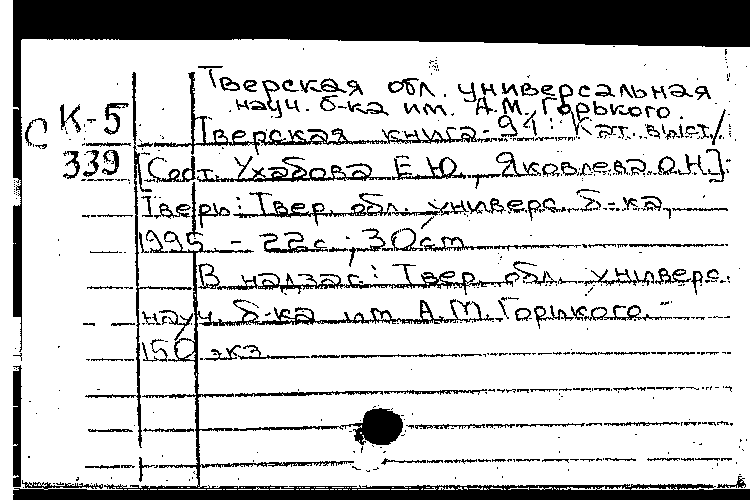 Тверская обл. универсальная
науч. б-ка им. А.М. Горького.
С К-5
339
Тверская книга-94: Кат. выст. /
[Сост. Ухабова Е.Ю., Яковлева О.Н.].
Тверь: Твер. обл. универс. б-ка,
1995 - 22с.; 30см.
В надзаг.: Твер. обл. универс.
науч. б-ка им А.М. Горького. -
150 экз.